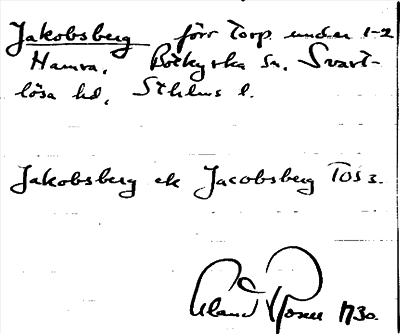 Jakobsberg förr torp under 1-2
Hamra, Botkyrka sn. Svart-
lösa hd, Sthlms l.
Jakobsberg ek Jacobsberg TOS 3.
Roser 1730.